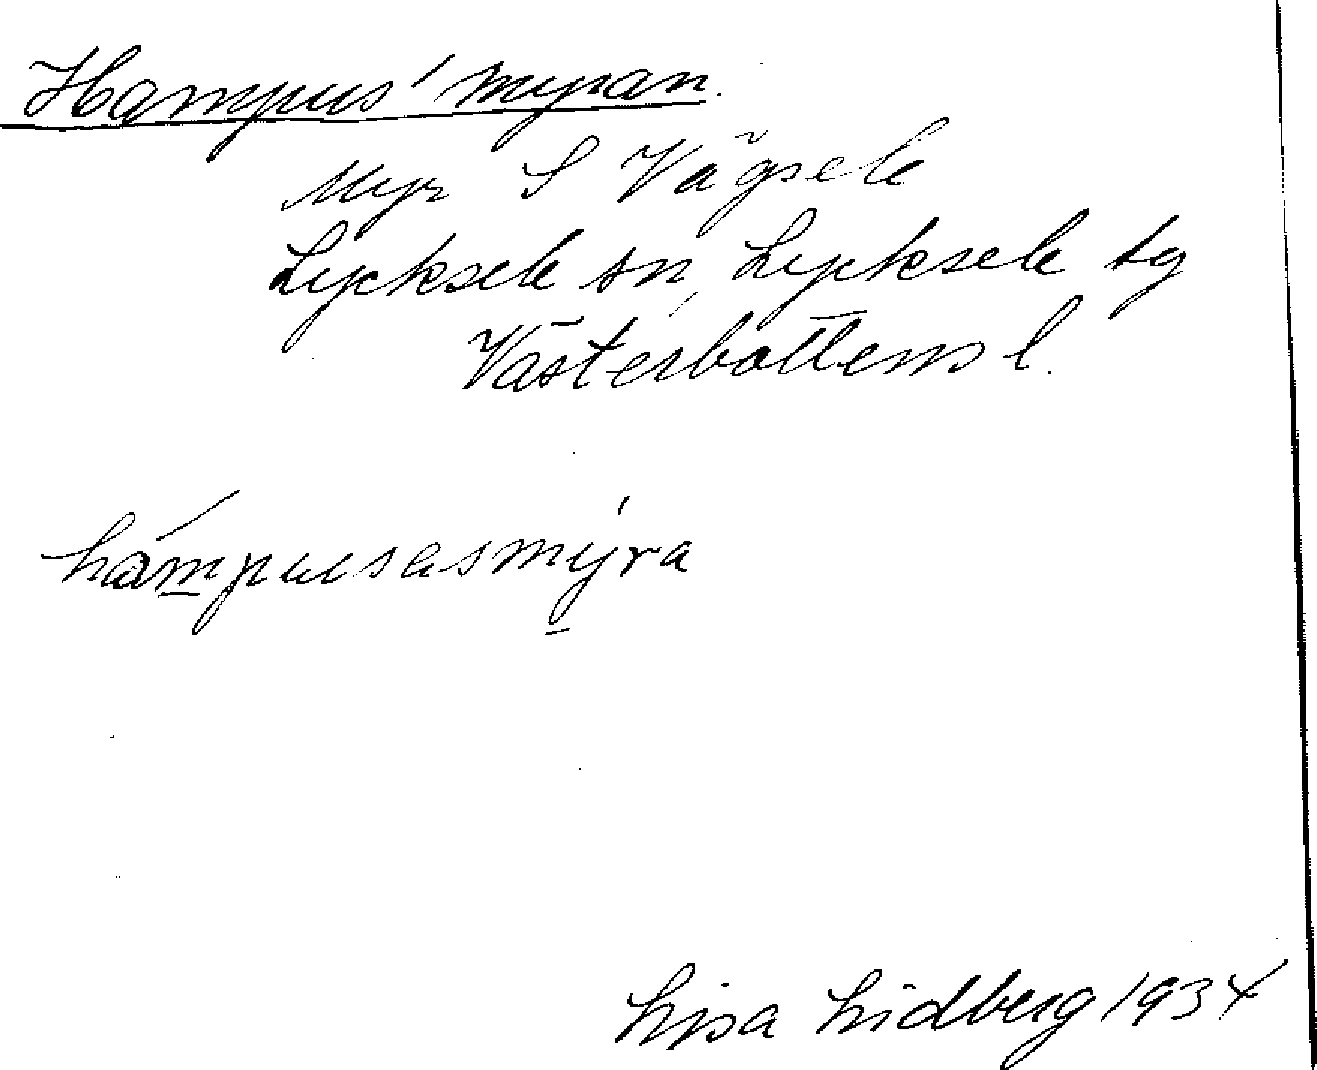 Hampus' myran.
Myr S Vägsele
Lycksele sn, Lycksele tg
Västerbottens l.
hámpusasmýra
Lisa Lidberg 1934